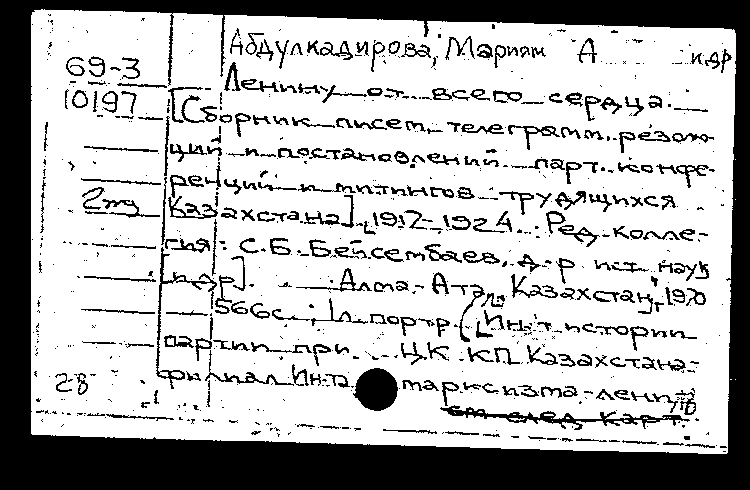 Абдулкадирова, Мариям А и др
69-3
10197
Ленину от всего сердца.
[Сборник писем, телеграмм, резолю-
ций и постановлений парт. конфе-
ренций и митингов трудящихся
Казахстана], 1917-1924. Ред. колле-
гия: С.Б. Бейсембаев, д-р ист. наук
[и др]. Алма-Ата, "Казахстан", 1970
566с.; 1л. портр. (Ин-т истории
партии при ЦК КП Казахстана-
филиал Ин-та марксизма-лени
28
см след карт.